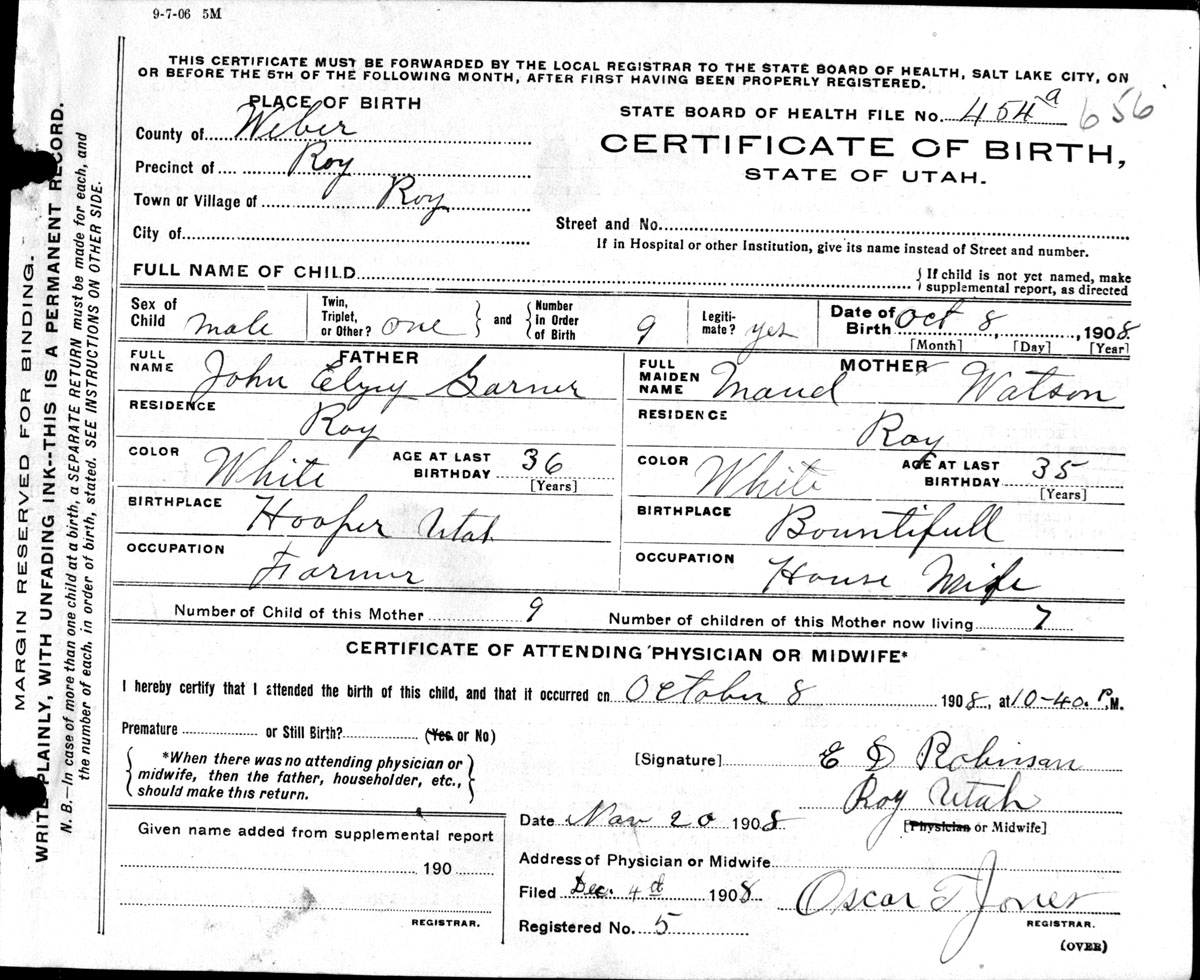 9-7-06 5M
THIS CERTIFICATE MUST BE FORWARDED BY THE LOCAL REGISTRAR TO THE STATE BOARD OF HEALTH, SALT LAKE CITY, ON
OR BEFORE THE 5TH OF THE FOLLOWING MONTH, AFTER FIRST HAVING BEEN PROPERLY REGISTERED.
MARGIN RESERVED FOR BINDING.
WRITE PLAINLY, WITH UNFADING INK--THIS IS A PERMANENT RECORD.
N. B.—In case of more than one child at a birth, a SEPARATE RETURN must be made for each, and
the number of each, in order of birth, stated. SEE INSTRUCTIONS ON OTHER SIDE.
PLACE OF BIRTH
County of Weber
Precinct of Roy
Town or Village of Roy
City of
STATE BOARD OF HEALTH FILE No. 454a 656
CERTIFICATE OF BIRTH,
STATE OF UTAH.
Street and No.
If in Hospital or other Institution, give its name instead of Street and number.
FULL NAME OF CHILD
{ If child is not yet named, make
supplemental report, as directed
Sex of Child male
Twin, Triplet, or Other? one } and { Number in Order of Birth 9
Legiti-mate? yes
Date of Birth Oct 8, 1908
[Month] [Day] [Year]
FATHER
FULL NAME John Elzy Garner
RESIDENCE Roy
COLOR White AGE AT LAST BIRTHDAY 36
[Years]
BIRTHPLACE Hooper Utah
OCCUPATION Farmer
MOTHER
FULL MAIDEN NAME Maud Watson
RESIDENCE Roy
COLOR White AGE AT LAST BIRTHDAY 35
[Years]
BIRTHPLACE Bountifull
OCCUPATION House Wife
Number of Child of this Mother 9 Number of children of this Mother now living 7
CERTIFICATE OF ATTENDING PHYSICIAN OR MIDWIFE*
I hereby certify that I attended the birth of this child, and that it occurred on October 8 1908, at 10-40. P.M.
Premature or Still Birth? (Yes or No)
{ *When there was no attending physician or
midwife, then the father, householder, etc.,
should make this return. }
[Signature] E D Robinson
Roy Utah
Date Nov 20 1908 [Physician or Midwife]
Given name added from supplemental report
190
REGISTRAR.
Address of Physician or Midwife
Filed Dec. 4th 1908 Oscar T Jones
REGISTRAR.
Registered No. 5
(OVER)